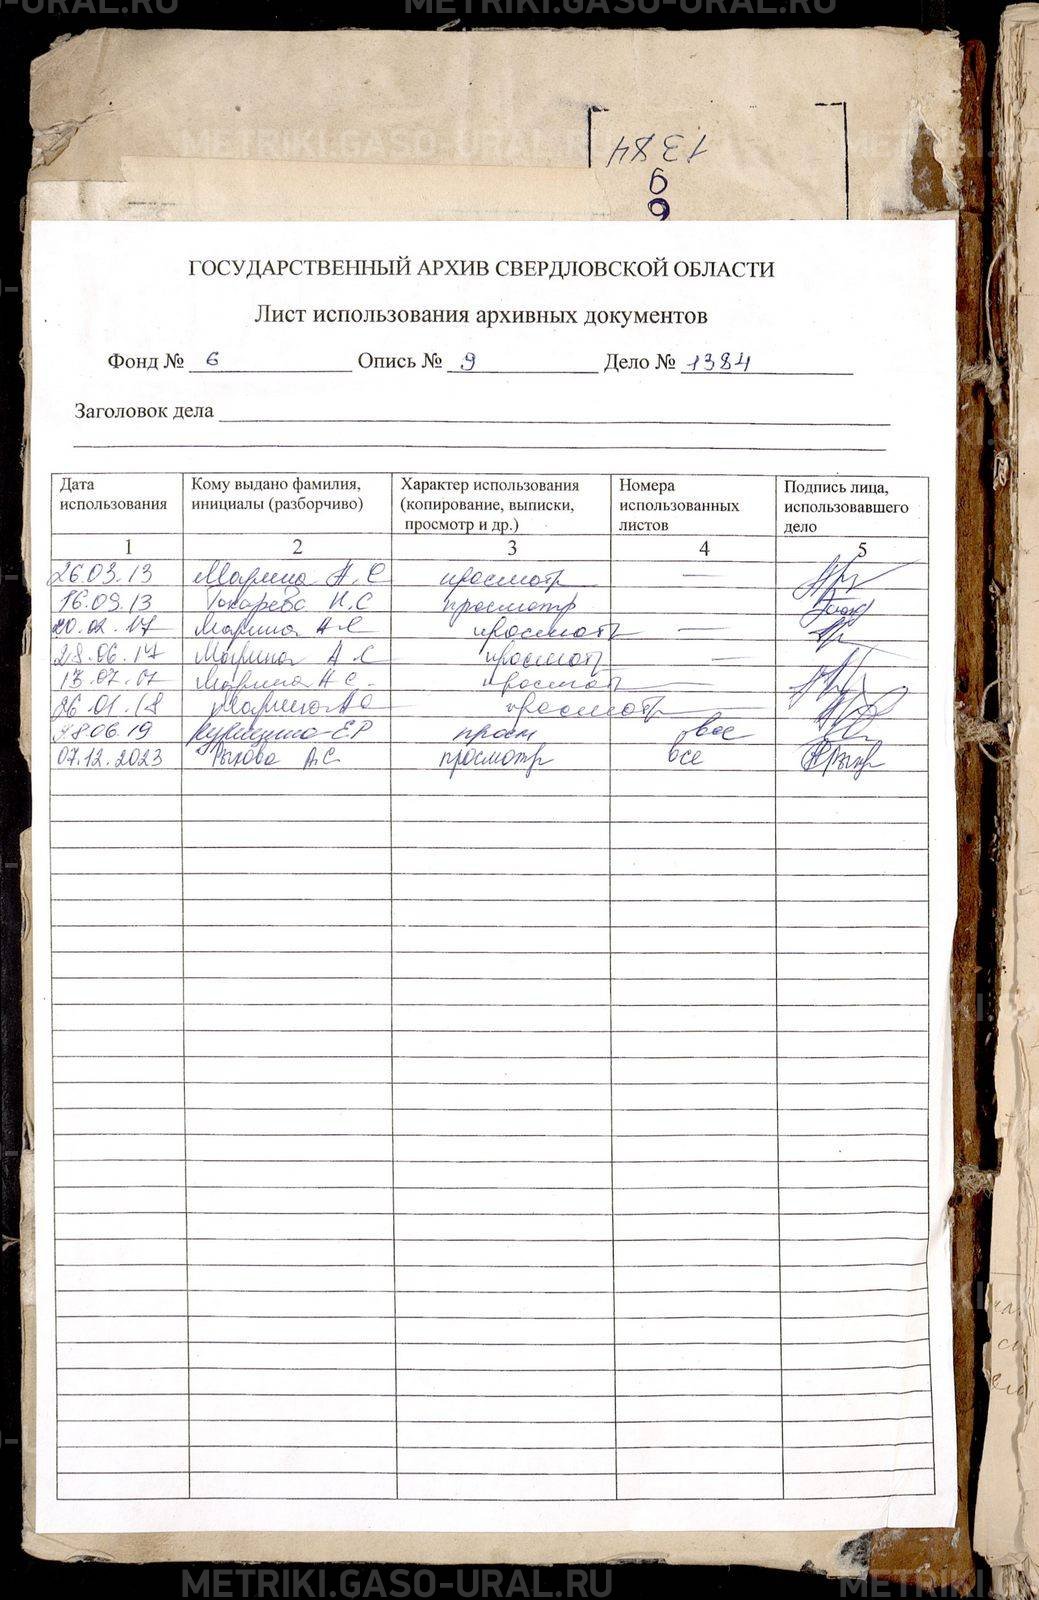 METRIKI.GASO-URAL.RU METRIKI.GASO-URAL.RU
METRIKI.GASO-URAL.RU METRIKI.GA
1384
9
6
ГОСУДАРСТВЕННЫЙ АРХИВ СВЕРДЛОВСКОЙ ОБЛАСТИ
Лист использования архивных документов
Фонд № 6 Опись № 9 Дело № 1384
Заголовок дела
Дата использования Кому выдано фамилия, инициалы (разборчиво) Характер использования (копирование, выписки, просмотр и др.) Номера использованных листов Подпись лица, использовавшего дело
1 2 3 4 5
26.03.13 Марина А.С просмотр —
16.09.13 Токарева Н.С просмотр
20.02.17 Марина А С просмотр —
28.06.17 Марина А С просмотр —
13.07.17 Марина А С. просмотр —
26 01.18 Марина А С просмотр —
06 19 ЕР просм все
07.12.2023 Рыкова А.С просмотр все
METRIKI.GASO-URAL.RU METRIKI.GASO